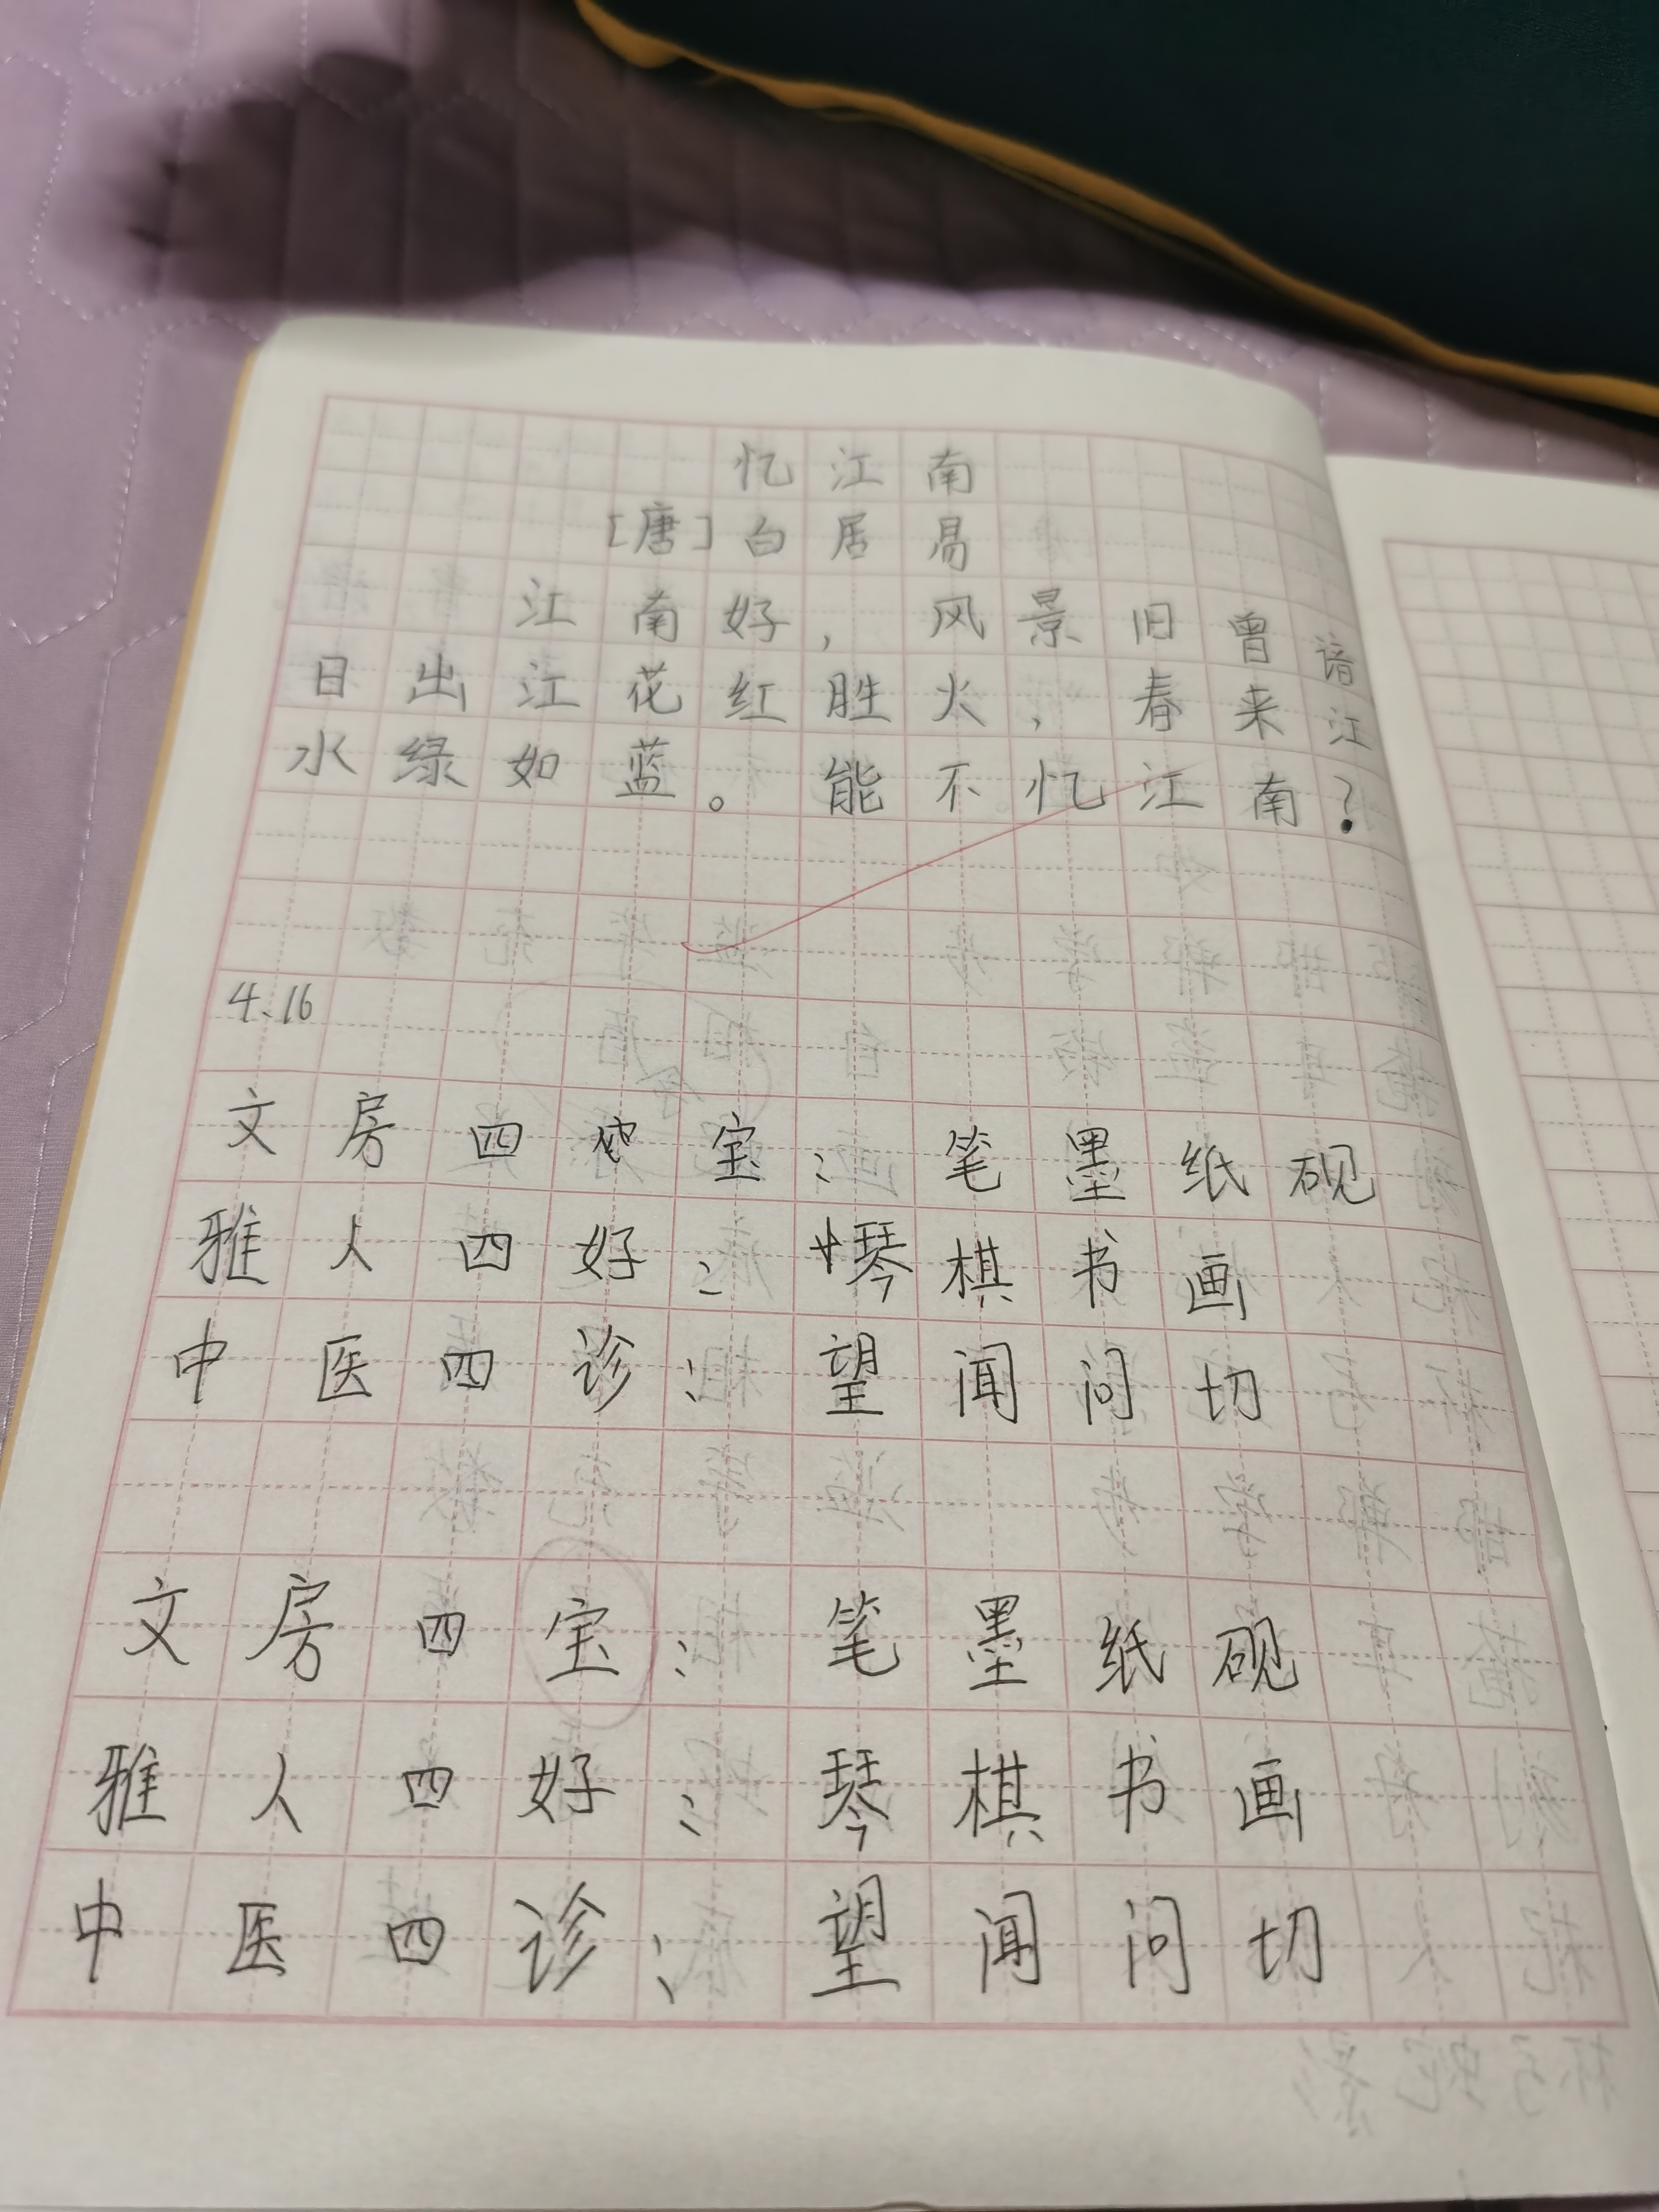 忆江南
[唐]白居易
江南好，风景旧曾谙
日出江花红胜火，春来江
水绿如蓝。能不忆江南？
4.16
文房四宝：笔墨纸砚
雅人四好：琴棋书画
中医四诊：望闻问切
文房四宝：笔墨纸砚
雅人四好：琴棋书画
中医四诊：望闻问切